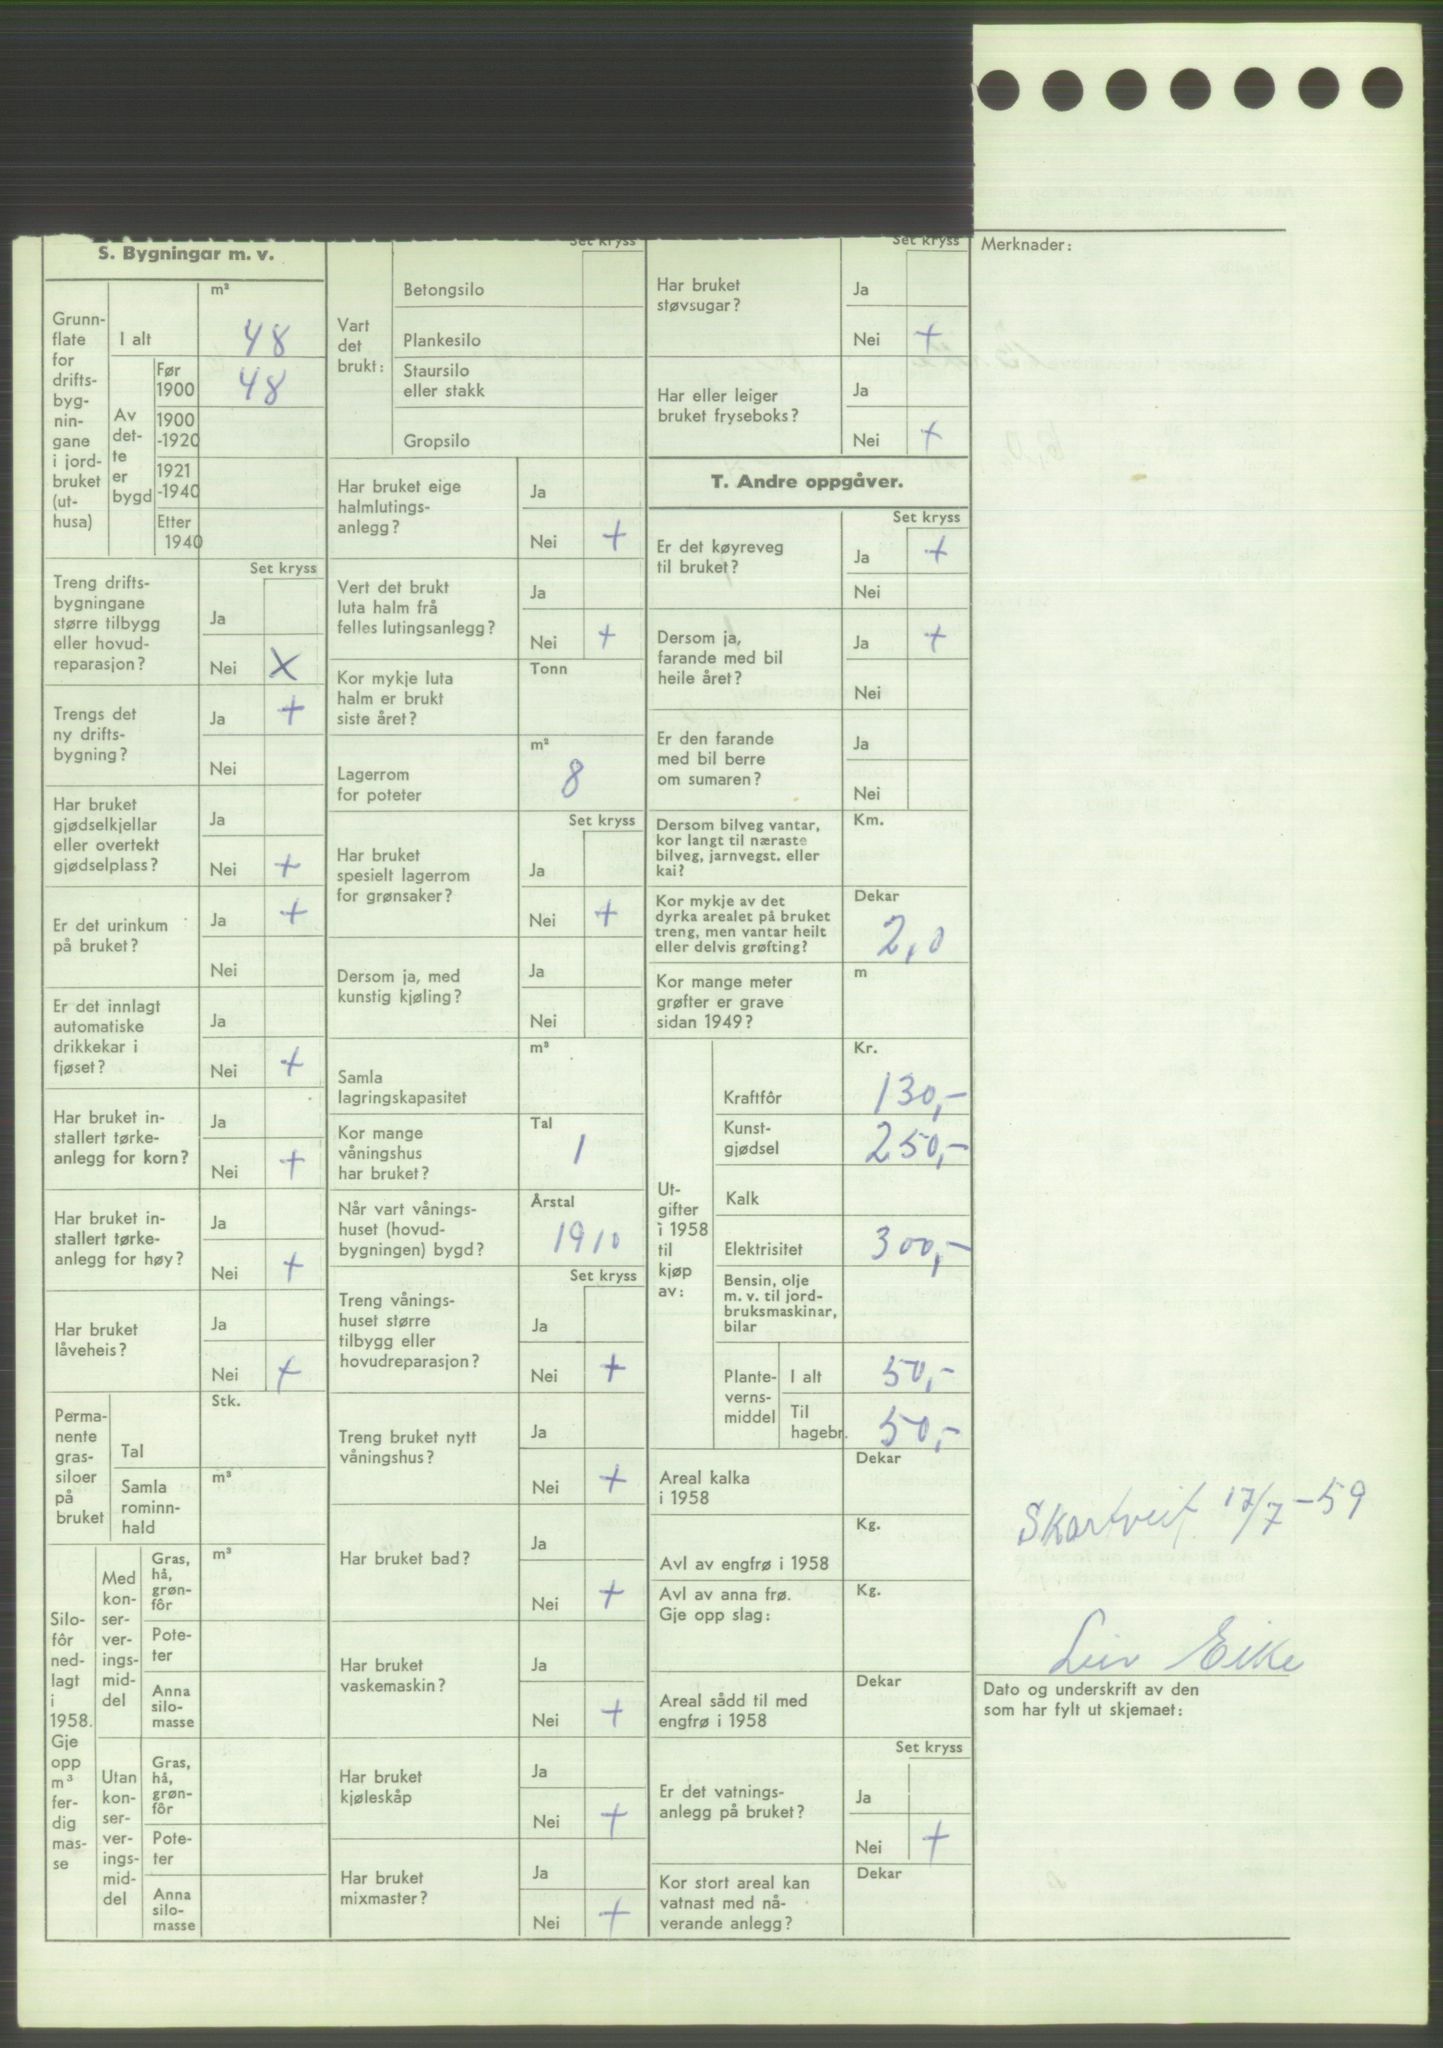 S. Bygningar m. v.
Grunn-
flate
for
drifts-
byg-
nin-
gane
i jord-
bruket
(ut-
husa)
m²
I alt
48
Av
det-
te
er
bygd
Før
1900
48
1900
-1920
1921
-1940
Etter
1940
Set kryss
Treng drifts-
bygningane
større tilbygg
eller hovud-
reparasjon?
Ja
Nei X
Trengs det
ny drifts-
bygning?
Ja +
Nei
Har bruket
gjødselkjellar
eller overtekt
gjødselplass?
Ja
Nei +
Er det urinkum
på bruket?
Ja +
Nei
Er det innlagt
automatiske
drikkekar i
fjøset?
Ja
Nei +
Har bruket in-
stallert tørke-
anlegg for korn?
Ja
Nei +
Har bruket in-
stallert tørke-
anlegg for høy?
Ja
Nei +
Har bruket
låveheis?
Ja
Nei +
Perma-
nente
gras-
siloer
på
bruket
Stk.
Tal
Samla
rominn-
hald
m³
Silo-
fôr
ned-
lagt
i
1958.
Gje
opp
m³
fer-
dig
mas-
se
Med
kon-
ser-
ver-
ings-
mid-
del
Gras,
hå,
grøn-
fôr
m³
Pote-
ter
Anna
silo-
masse
Utan
kon-
ser-
ver-
ings-
mid-
del
Gras,
hå,
grøn-
fôr
Pote-
ter
Anna
silo-
masse
Set kryss
Vart
det
brukt:
Betongsilo
Plankesilo
Staursilo
eller stakk
Gropsilo
Har bruket eige
halmlutings-
anlegg?
Ja
Nei +
Vert det brukt
luta halm frå
felles lutingsanlegg?
Ja
Nei +
Kor mykje luta
halm er brukt
siste året?
Tonn
Lagerrom
for poteter
m²
8
Set kryss
Har bruket
spesielt lagerrom
for grønsaker?
Ja
Nei +
Dersom ja, med
kunstig kjøling?
Ja
Nei
Samla
lagringskapasitet
m³
Kor mange
våningshus
har bruket?
Tal
1
Når vart vånings-
huset (hovud-
bygningen) bygd?
Årstal
1910
Set kryss
Treng vånings-
huset større
tilbygg eller
hovudreparasjon?
Ja
Nei +
Treng bruket nytt
våningshus?
Ja
Nei +
Har bruket bad?
Ja
Nei +
Har bruket
vaskemaskin?
Ja
Nei +
Har bruket
kjøleskåp
Ja
Nei +
Har bruket
mixmaster?
Ja
Nei +
Set kryss
Har bruket
støvsugar?
Ja
Nei +
Har eller leiger
bruket fryseboks?
Ja
Nei +
T. Andre oppgåver.
Set kryss
Er det køyreveg
til bruket?
Ja +
Nei
Dersom ja,
farande med bil
heile året?
Ja +
Nei
Er den farande
med bil berre
om sumaren?
Ja
Nei
Dersom bilveg vantar,
kor langt til næraste
bilveg, jarnvegst. eller
kai?
Km.
Kor mykje av det
dyrka arealet på bruket
treng, men vantar heilt
eller delvis grøfting?
Dekar
2,0
Kor mange meter
grøfter er grave
sidan 1949?
m
Ut-
gifter
i 1958
til
kjøp
av:
Kr.
Kraftfôr
130,-
Kunst-
gjødsel
250,-
Kalk
Elektrisitet
300,-
Bensin, olje
m. v. til jord-
bruksmaskinar,
bilar
Plante-
verns-
middel
I alt
50,-
Til
hagebr.
50,-
Areal kalka
i 1958
Dekar
Avl av engfrø i 1958
Kg.
Avl av anna frø.
Gje opp slag:
Kg.
Areal sådd til med
engfrø i 1958
Dekar
Set kryss
Er det vatnings-
anlegg på bruket?
Ja
Nei +
Kor stort areal kan
vatnast med nå-
verande anlegg?
Dekar
Merknader:
Skartveit 17/7-59
Leiv Eike
Dato og underskrift av den
som har fylt ut skjemaet: